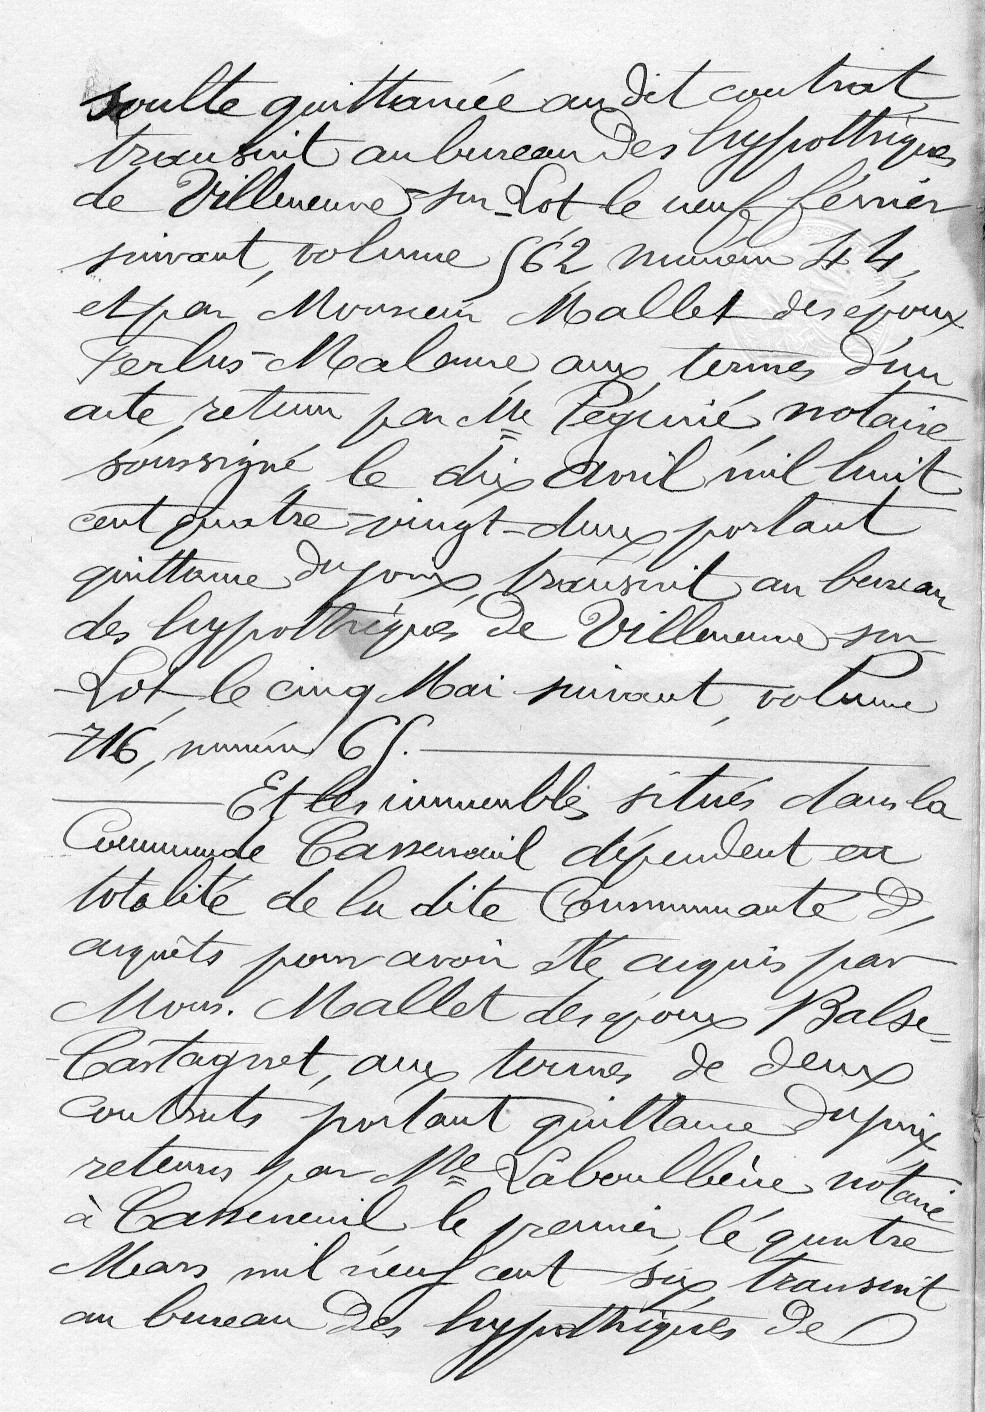 soulte quittancée au dit contrat,
transcrit au bureau des hypothèques
de Villeneuve-sur-Lot le neuf février
suivant, volume 562 numéro 44,
et par Monsieur Mallet des époux
Ferlus-Malaure aux termes d'un
acte retenu par Me Pégurié, notaire
soussigné le dix avril mil huit
cent quatre-vingt-deux portant
quittance du prix, transcrit au bureau
des hypothèques de Villeneuve-sur-
-Lot le cinq Mai suivant, volume
716, numéro 65.
Et les immeubles situés dans la
Commune de Casseneuil dépendent en
totalité de la dite Communauté d'
acquêts pour avoir été acquis par
Mons. Mallet des époux Balse-
-Castagnet, aux termes de deux
contrats portant quittance du prix,
retenus par Me Laboulbène notaire
à Casseneuil le premier, le quatre
Mars mil neuf cent six, transcrit
au bureau des hypothèques de